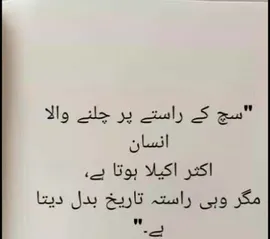 "سچ کے راستے پر چلنے والا
انسان
اکثر اکیلا ہوتا ہے،
مگر وہی راستہ تاریخ بدل دیتا
ہے۔"